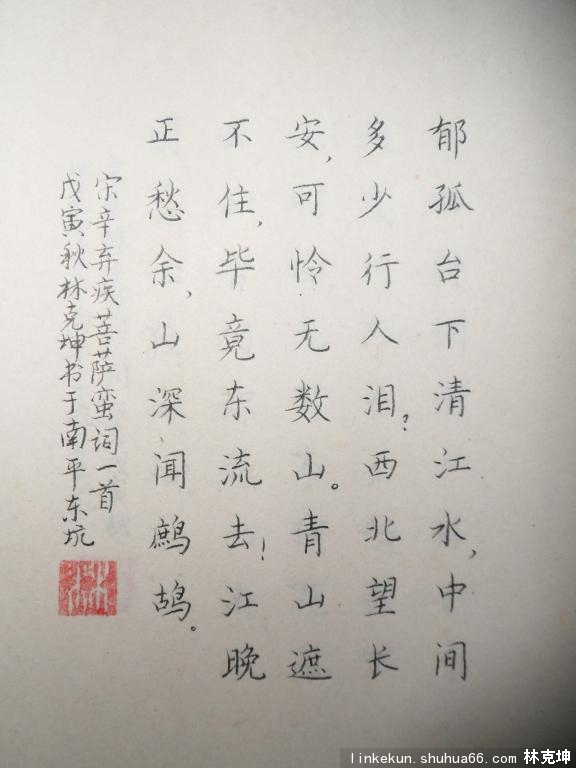 郁孤台下清江水,中间
多少行人泪?西北望长
安,可怜无数山。青山遮
不住,毕竟东流去!江晚
正愁余,山深闻鹧鸪。
宋辛弃疾菩萨蛮词一首
戊寅秋林克坤书于南平东坑
linkekun.shuhua66.com 林克坤